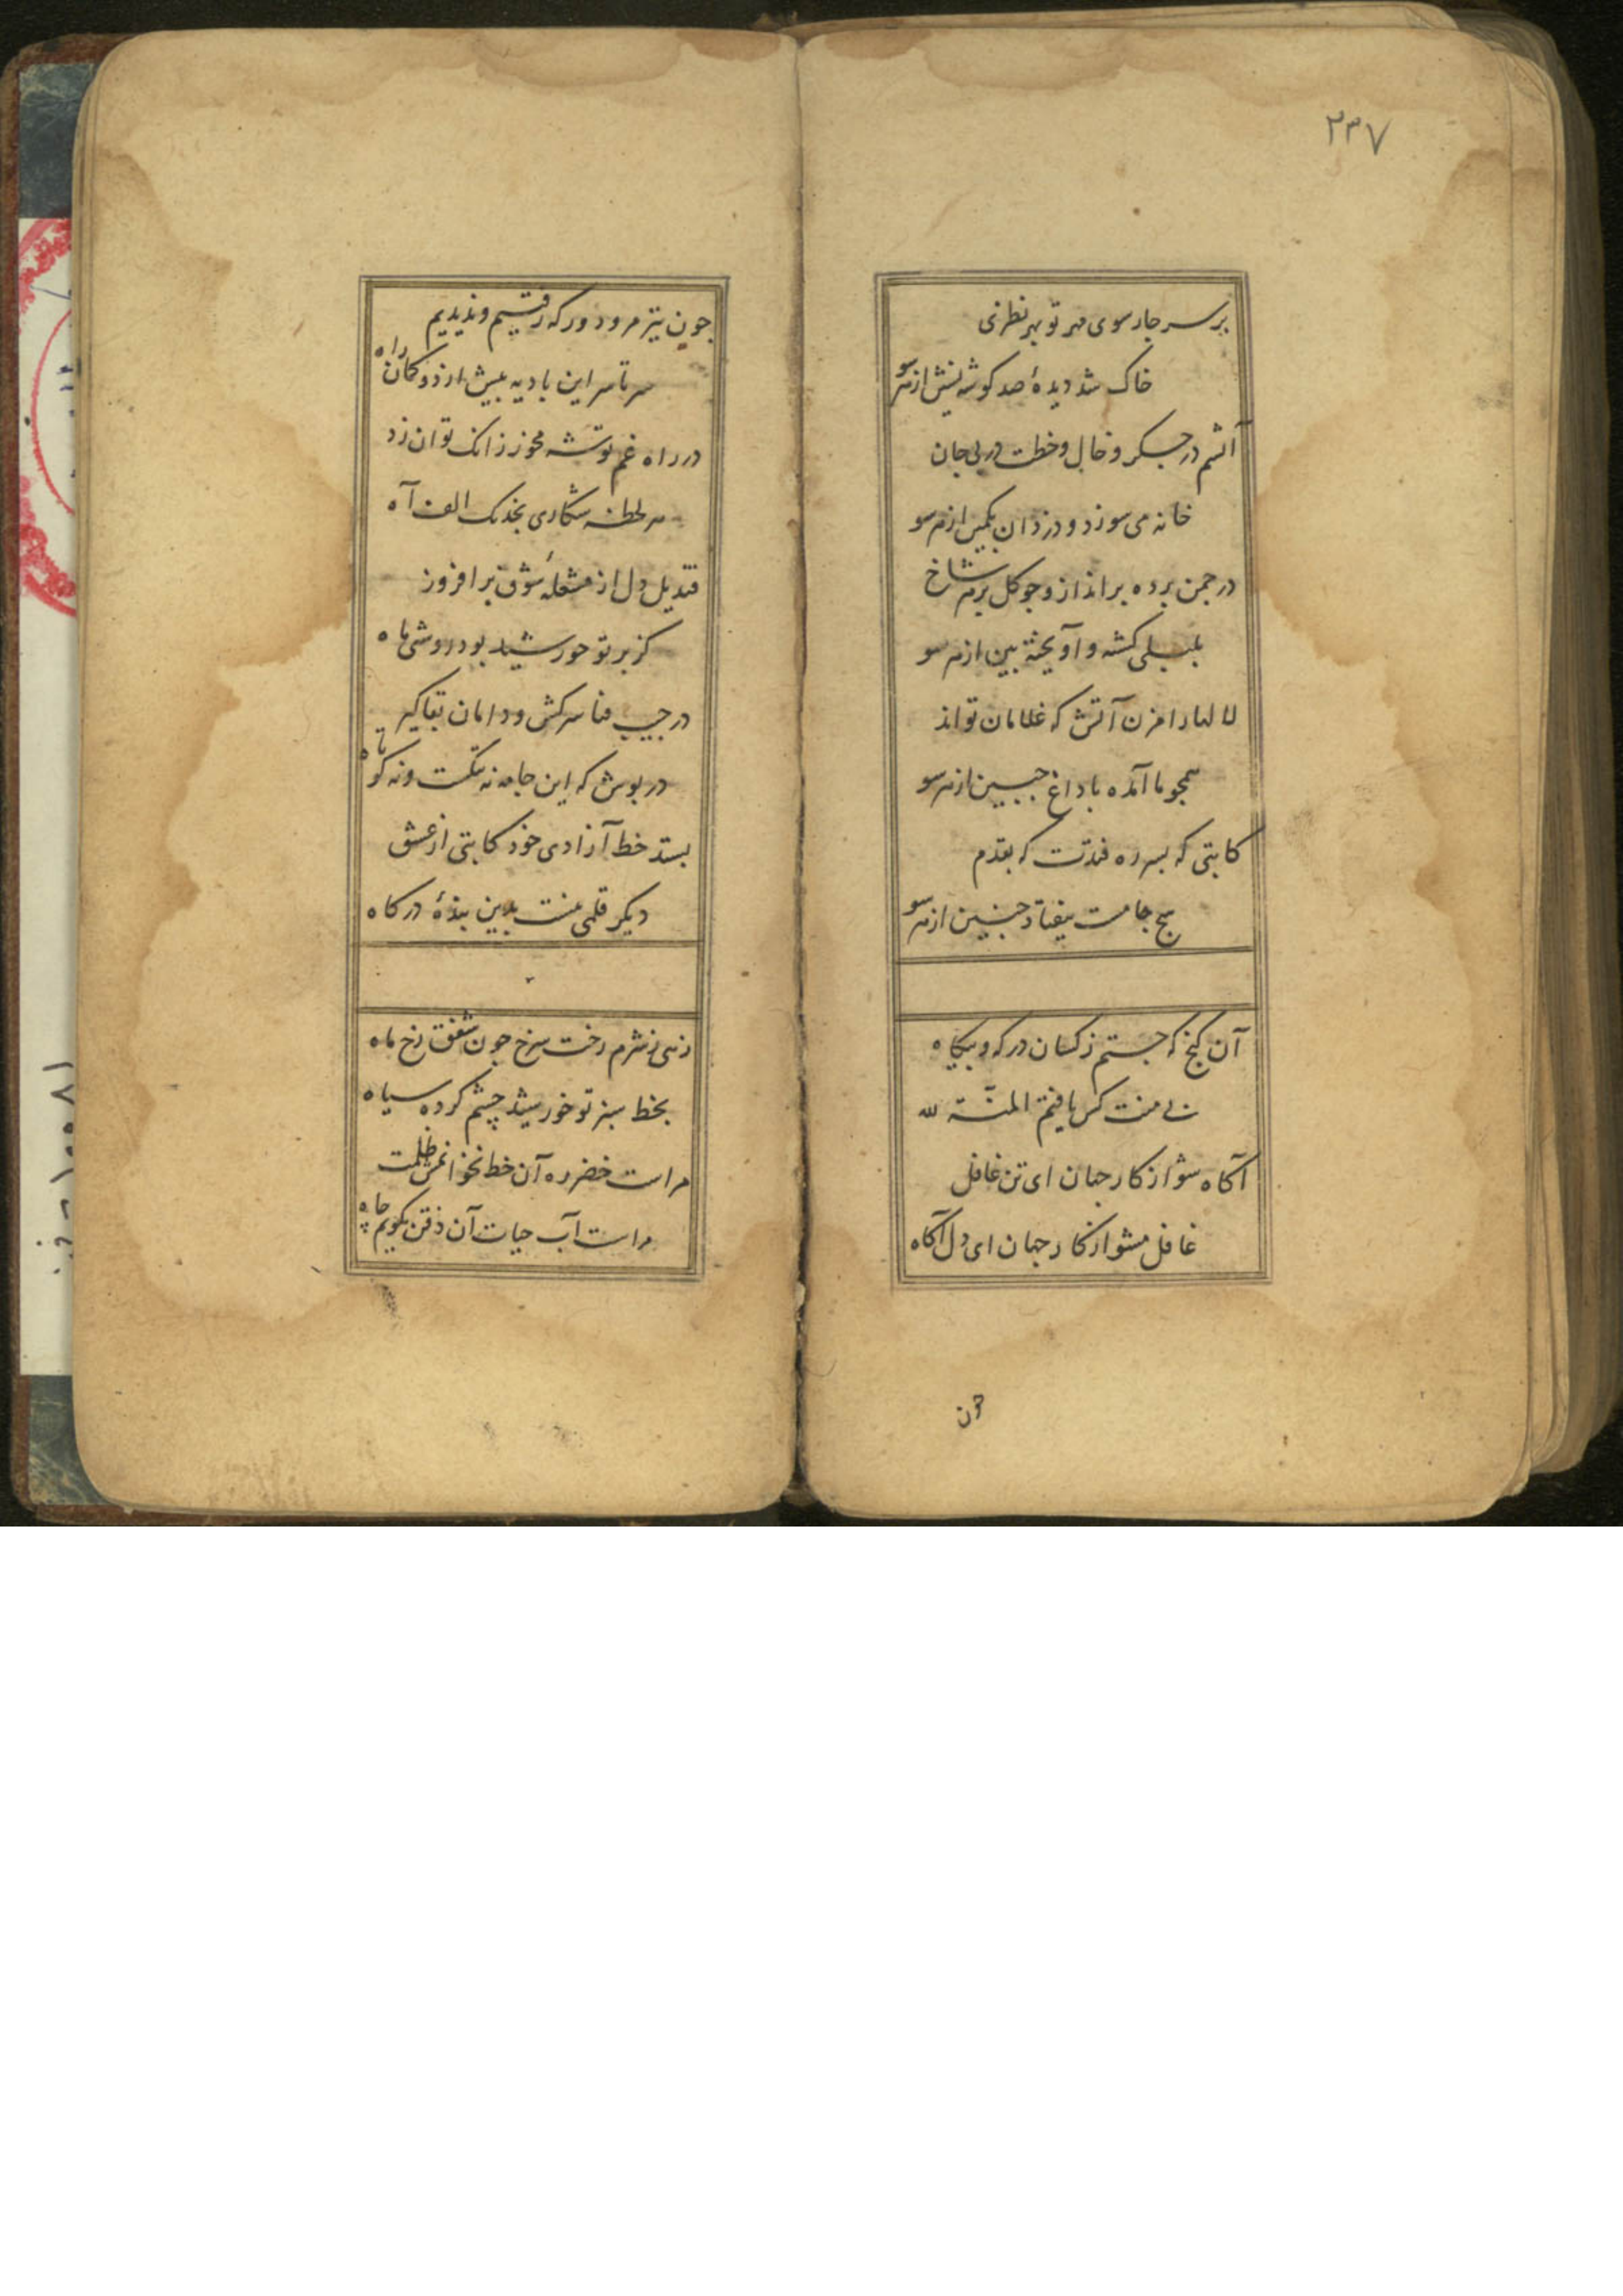 ۲۳۷
بر سر جار سوی مهر تو بهر نظری
خاک شد دیدهٔ صد کوشه نشین از هر سو
آتشم در جسکر و خال و خطت در پی جان
خانه می سوزد و دزدان بکمین از هر سو
در جمن برده برانداز و جو کل بر هر شاخ
بلبلی کشته و آویخته بین از هر سو
لاله را مزن آتش که غلامان تواند
همجو ما آمده با داغ جبین از هر سو
کاتبی که بسر ره فتدت که بقدم
هیج جا مست نیفتاد جنین از هر سو
آن کنج که جستم ز کسان در که و بیکاه
بی منت کس یافتم المنّة لله
آکاه شو از کار جهان ای تن غافل
غافل مشو از کار جهان ای دل آکاه
جون
جون تیز مرو دور که رفتیم و ندیدیم
سر تا سر این بادیه بیش از دو کمان راه
در راه غم توشه مخور زانک توان زد
هر لحظه شکاری بخدنک الف آه
قندیل دل از مشعلهٔ شوق برافروز
کز برتو خورشید بود روشنی ماه
در جیب فنا سر کش و دامان بقا کیر
در بوش که این جامه نه تنکست و نه کوتاه
بستد خط آزادی خود کاتبی از عشق
دیکر قلمی نیست بدین بندهٔ درکاه
زهی ز شرم رخت سرخ جون شفق رخ ماه
بخط سبز تو خورشید چشم کرده سیاه
مراست خضر ره آن خط نخوانمش ظلمت
مراست آب حیات آن ذقن نکویم چاه